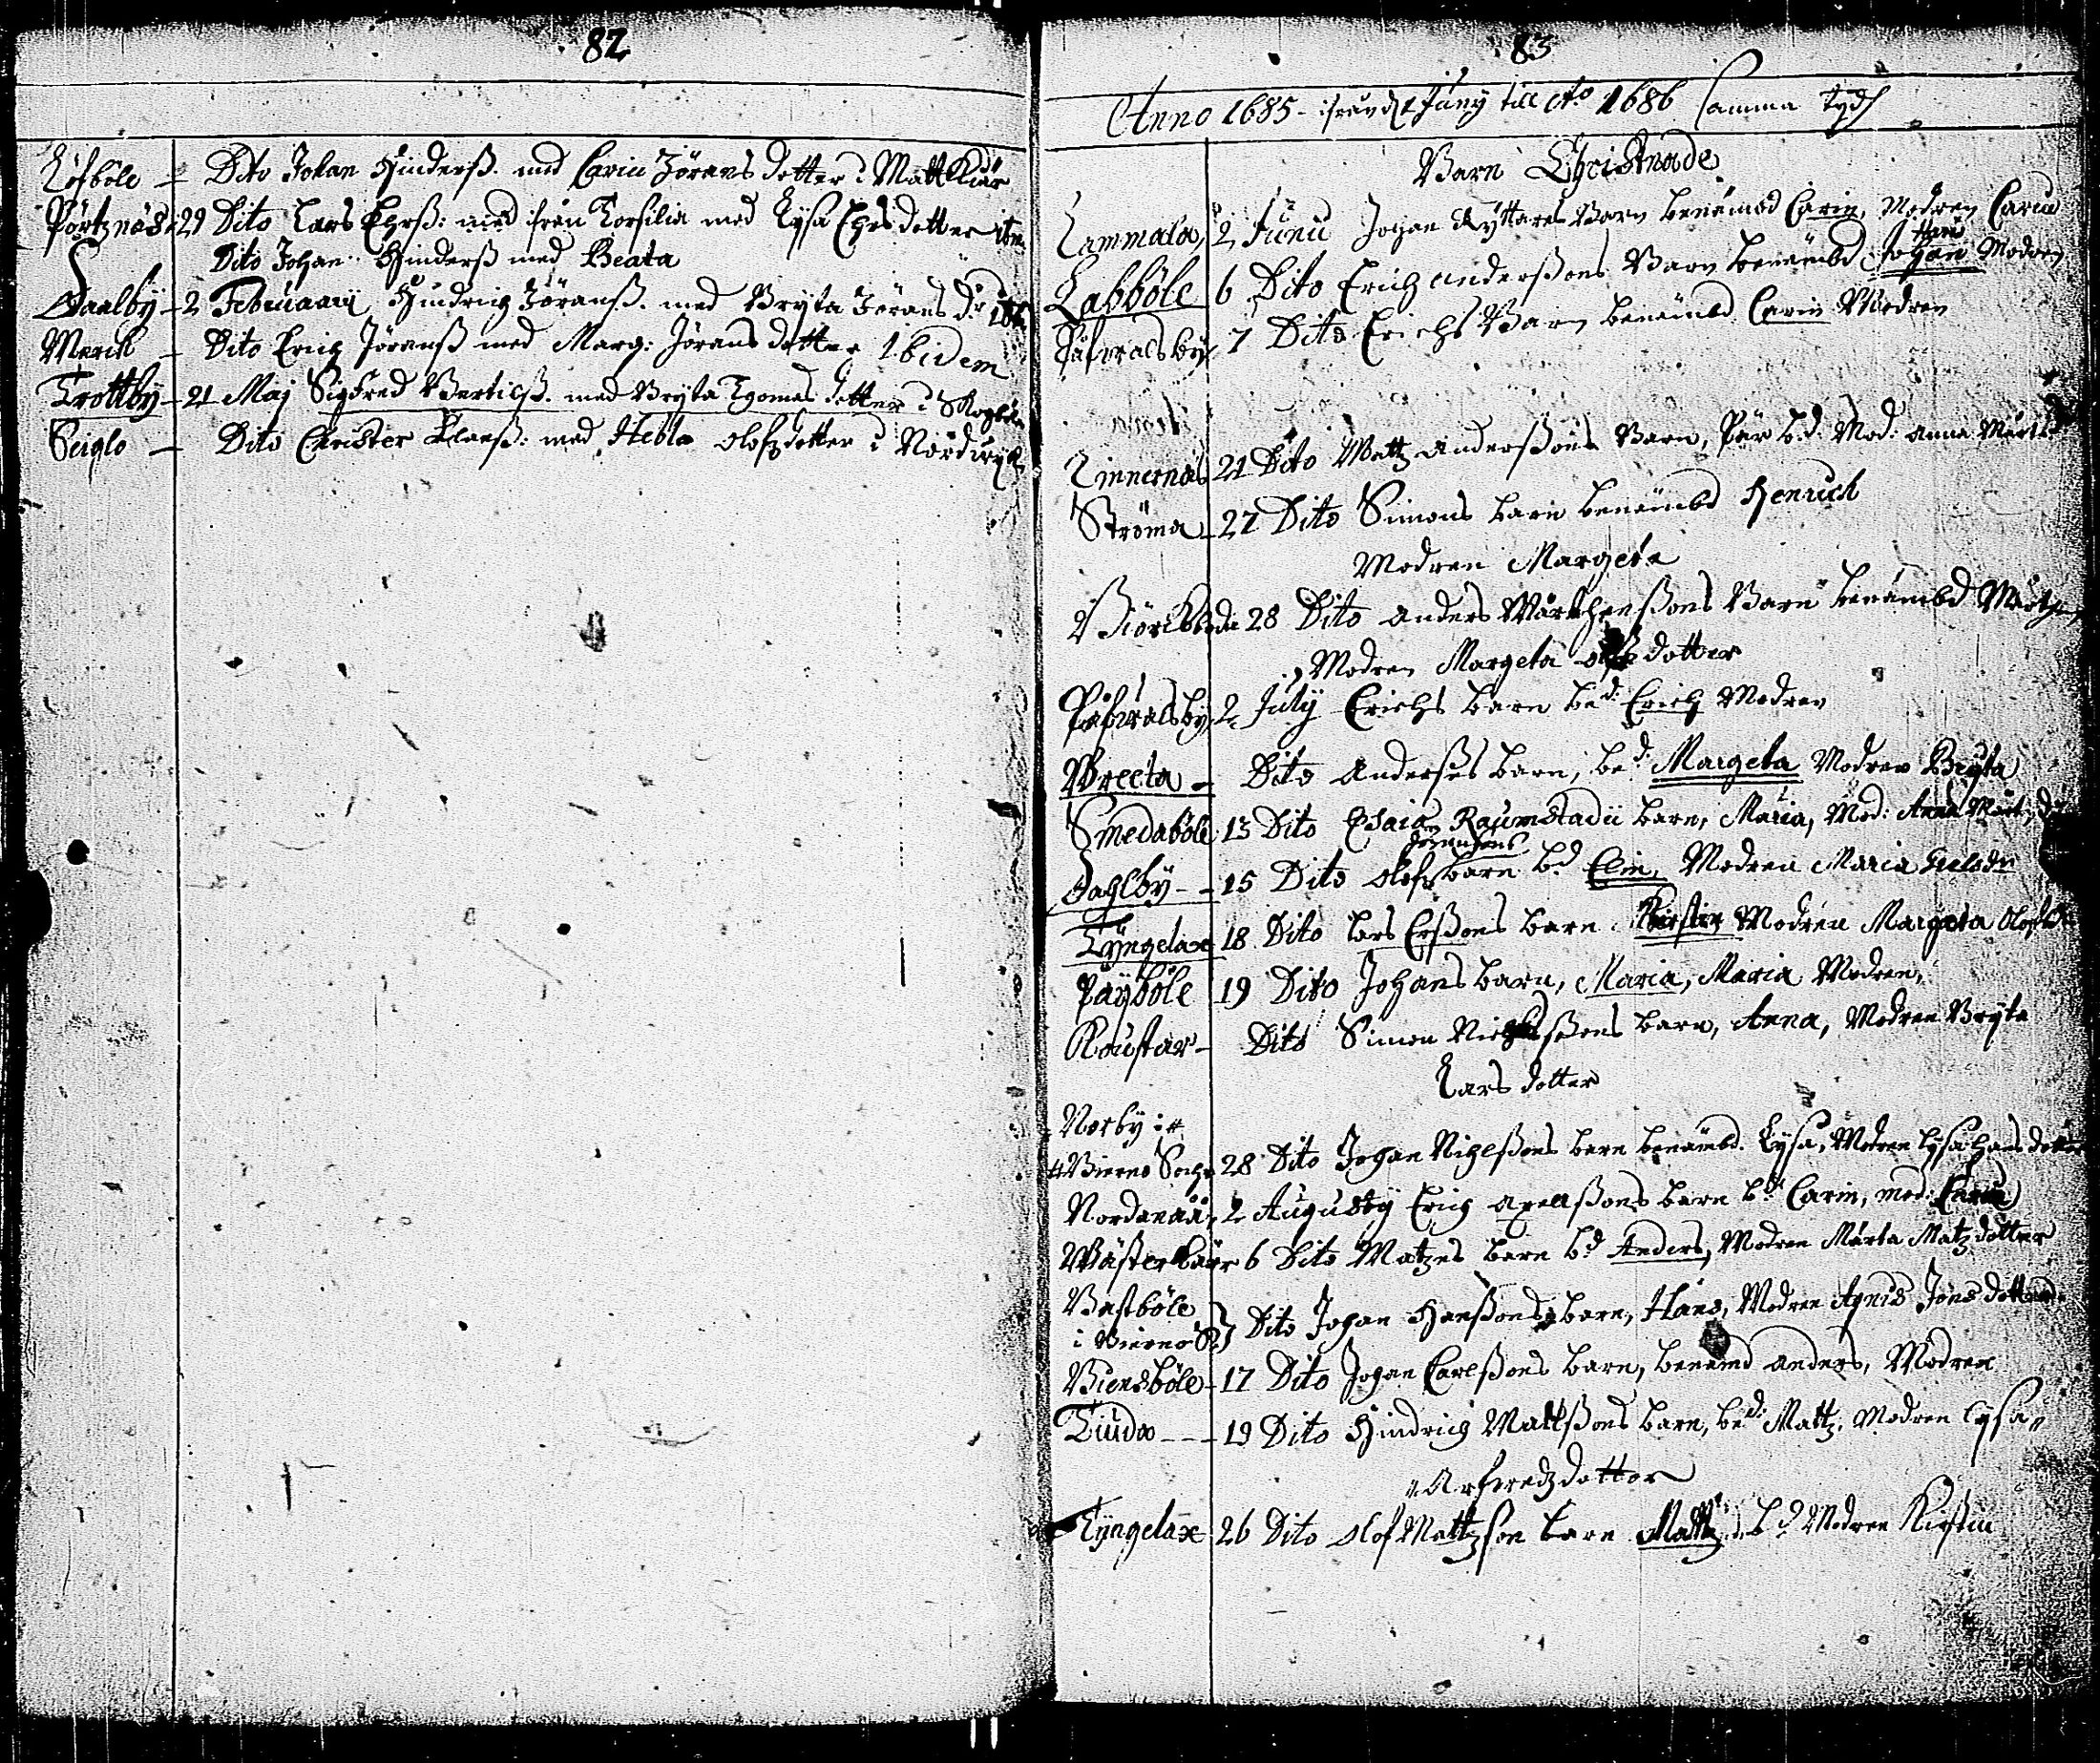 82
Löfböle - Dito Johan Hinderß. med Carin Jörans dotter i Mattkiär
Pörtznäs - 29 Dito Lars Ehrß: med frön Torsilia med Lysa Ehrs dotter
Dito Johan Hinderß med Beata
Daalby - 2 Februarij Hindrich Jöranß. med Bryta Jörans dr
Merck - Dito Erich Jöranß med Marg: Jörans dotter Ibidem
Trottby - 21 Maj Sigfred Bertilß. med Bryta Thomes dotter i
Seiglo - Dito Christer Claeß: med Hebla Olofz dotter i
83
Anno 1685 - ifrån d 1 Junij till Ao 1686 samma Tydh
Barn Christnade
Lammala, 2 Junii Johan Ryttares Barn benämd Carin, Modren Carin
Labböle 6 Dito Erich anderßons Barn benämbd Johan Modren
Påfvalsby, 7 Dito Erichs Barn benämbd Carin Modren
Linnernäs 21 Dito Mattz anderßons Barn, Pär b.d: Mod: anna
Ströma - 27 Dito Simons barn benämbd Henrich
Modren Margeta
Biörkboda 28 Dito anders Mårthenßons Barn benämbd
Modren Margeta dotter
Påfvalsby, 2 July Erichs barn be.d: Erich Modren
Wreeta - Dito Anderßes barn, be.d: Margeta Modren Bryta
Smedaböle 13 Dito Esaiæ Raumstadii barn, Maria, Mod: Anna
Dahlby - - 15 Dito Olofs barn b.d Elin, Modren Maria
Tyngelax 18 Dito Lars Erßons barn Kirstin Modren Margeta
Päyböle 19 Dito Johans barn, Maria, Maria Modren,
Koustar - Dito Simon barn, Anna, Modren Bryta
Lars dotter
Norby i #
# Bierno Sochn 28 Dito Johan Nichlßons barn benämbd. Lysa, Modren Lysa Hans dotter
Nordanåå, 2 Augusty Erich Axellßons barn b.d Carin, mod: Carin
Wästerkärr 6 Dito Matzes barn b.d Anders, Modren Marta Matz dotter
Bastböle
i Bierno S: } Dito Johan Hanßons barn, Hans, Modren Agnis Jöns dotter
Biensböle - 17 Dito Johan Carlßons barn, benämd anders, Modren
Tiudo - - - 19 Dito Hindrich Mattßons barn, be.d: Mattz, Modren Lysa
Arfvedz dotter
Tyngelax 26 Dito Olof Mattzson barn Matts b.d Modren Kirstin